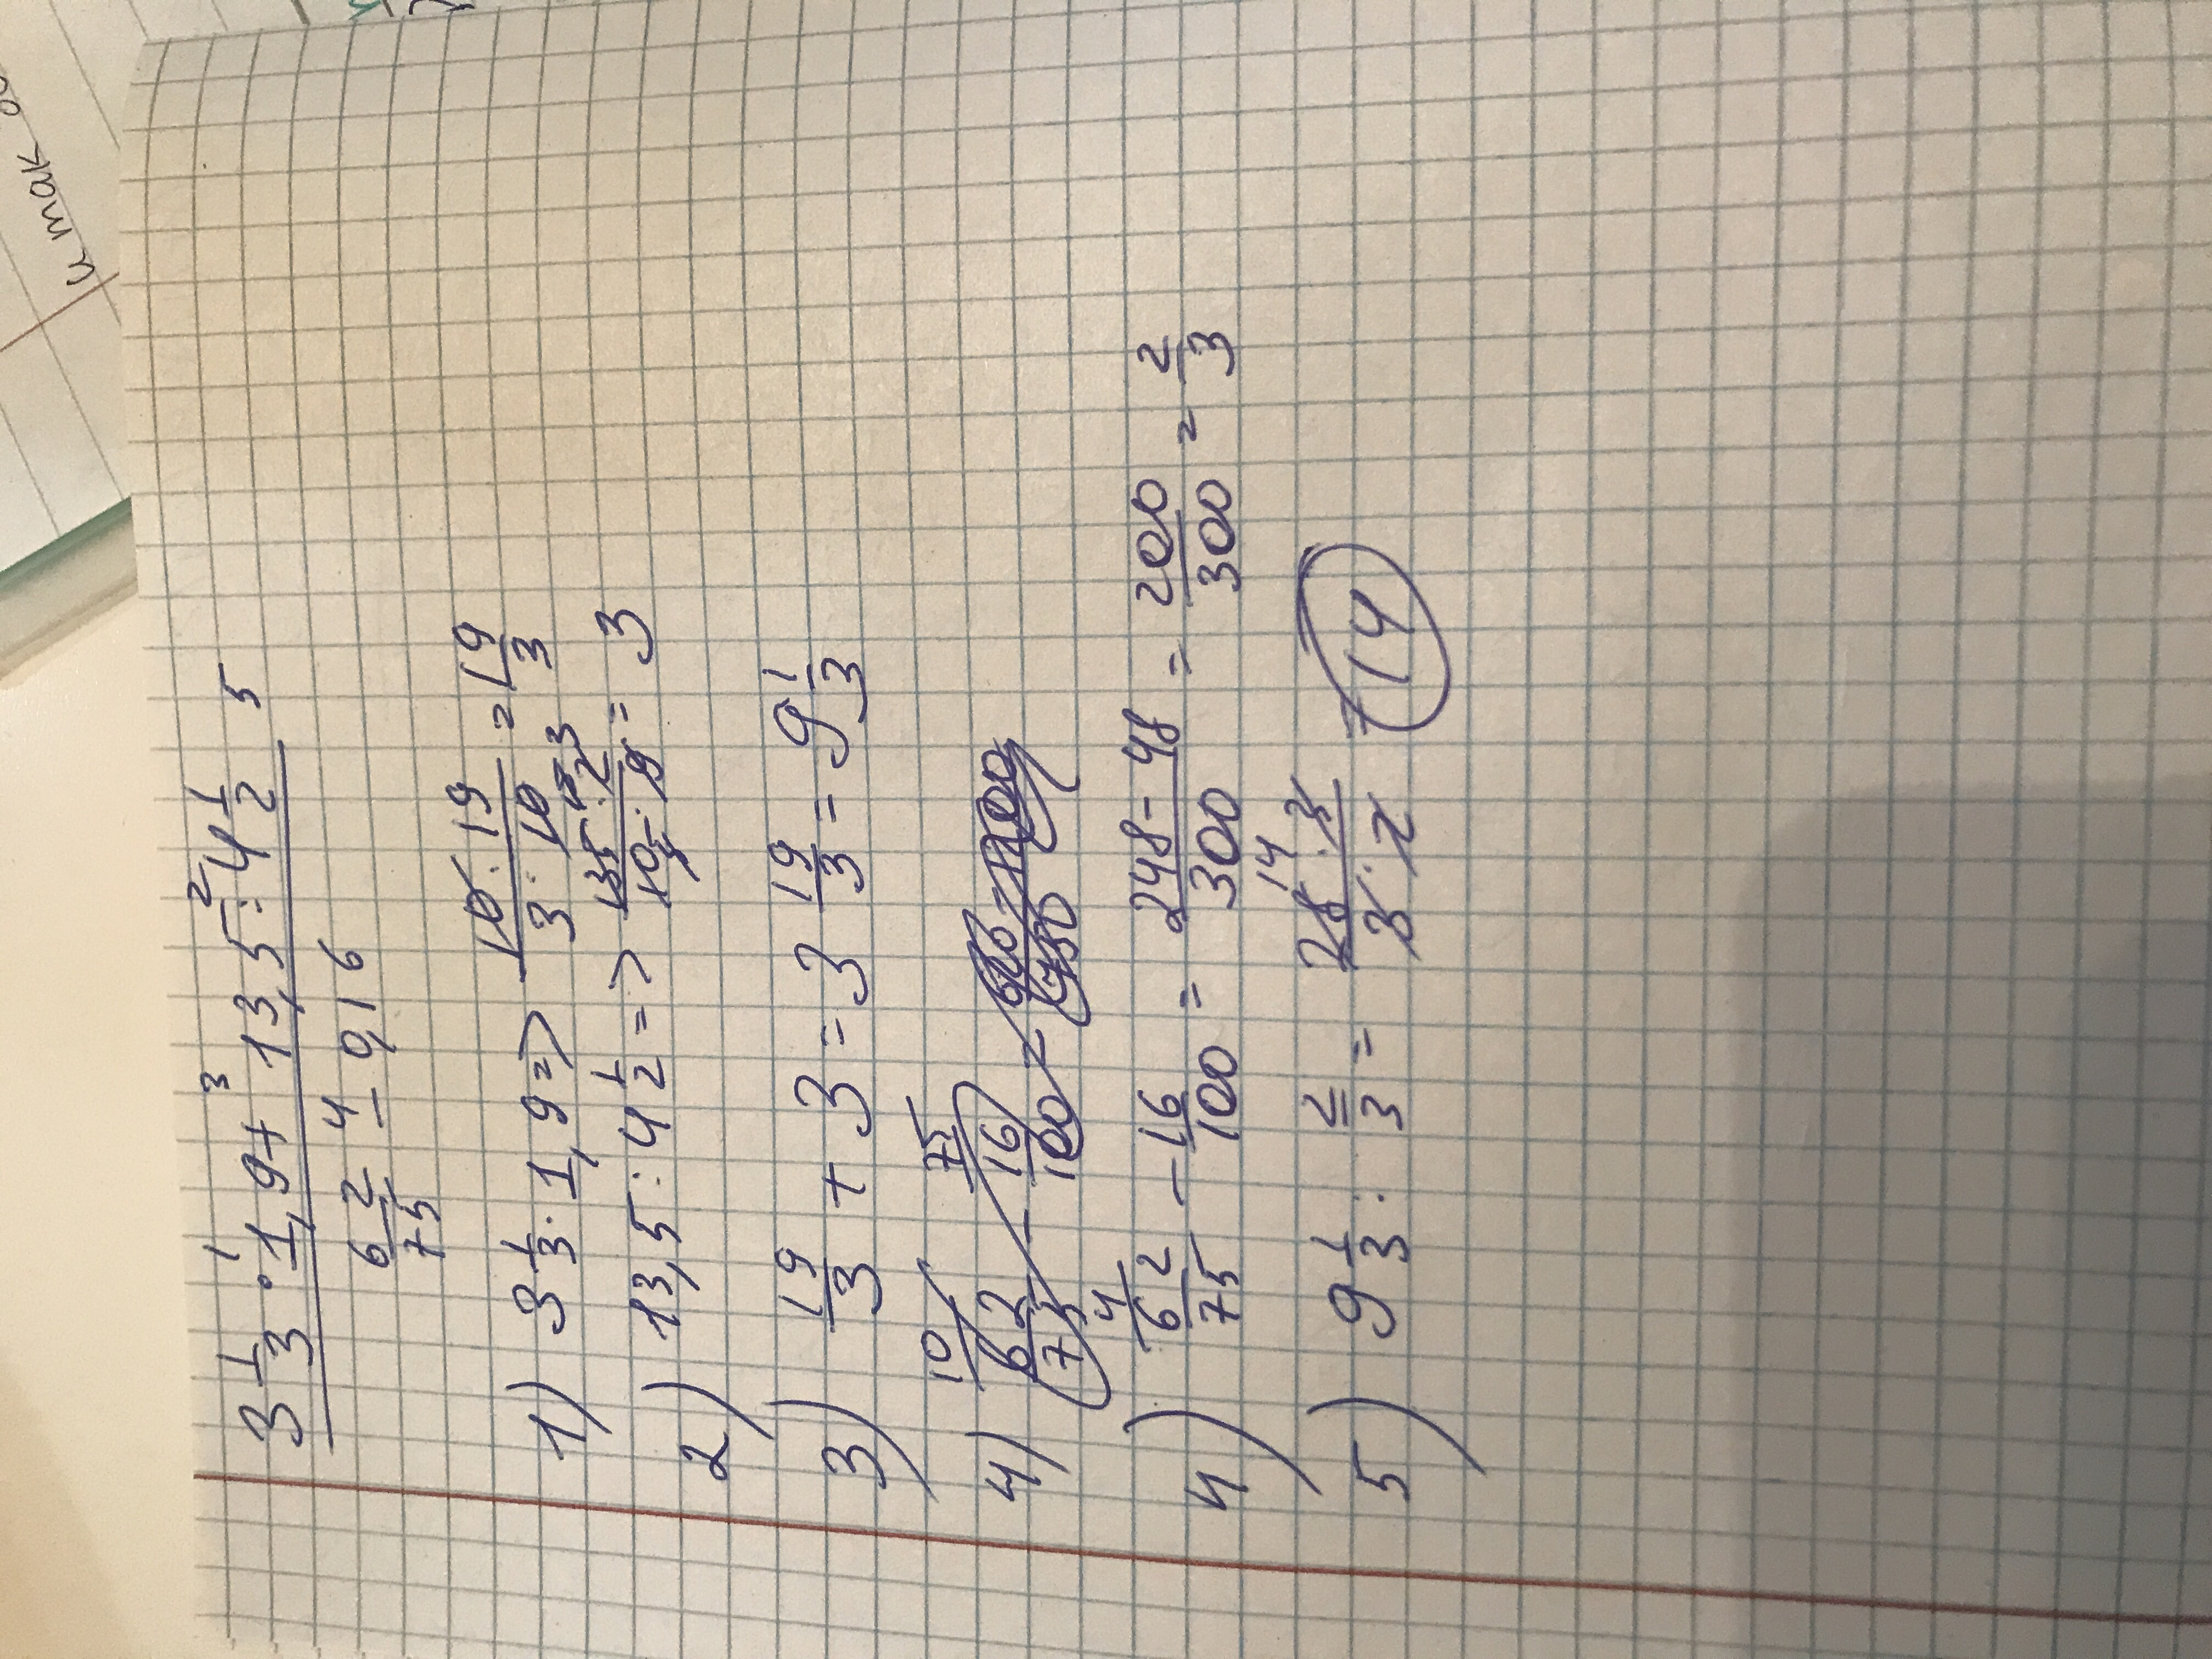 и так
3 1/3 · 1,9 + 13,5 : 4 1/2
1 3 2 5
62/75 - 0,16
4
1) 3 1/3 · 1,9 => 10 · 19 / 3 · 10 = 19/3
2) 13,5 : 4 1/2 => 135 · 2 / 10 · 9 = 3
3) 19/3 + 3 = 3 19/3 = 9 1/3
4) 62/75 - 16/100 =
4) 62/75 - 16/100 = 248 - 48 / 300 = 200/300 = 2/3
5) 9 1/3 : 2/3 = 28 · 3 / 3 · 2 = 14